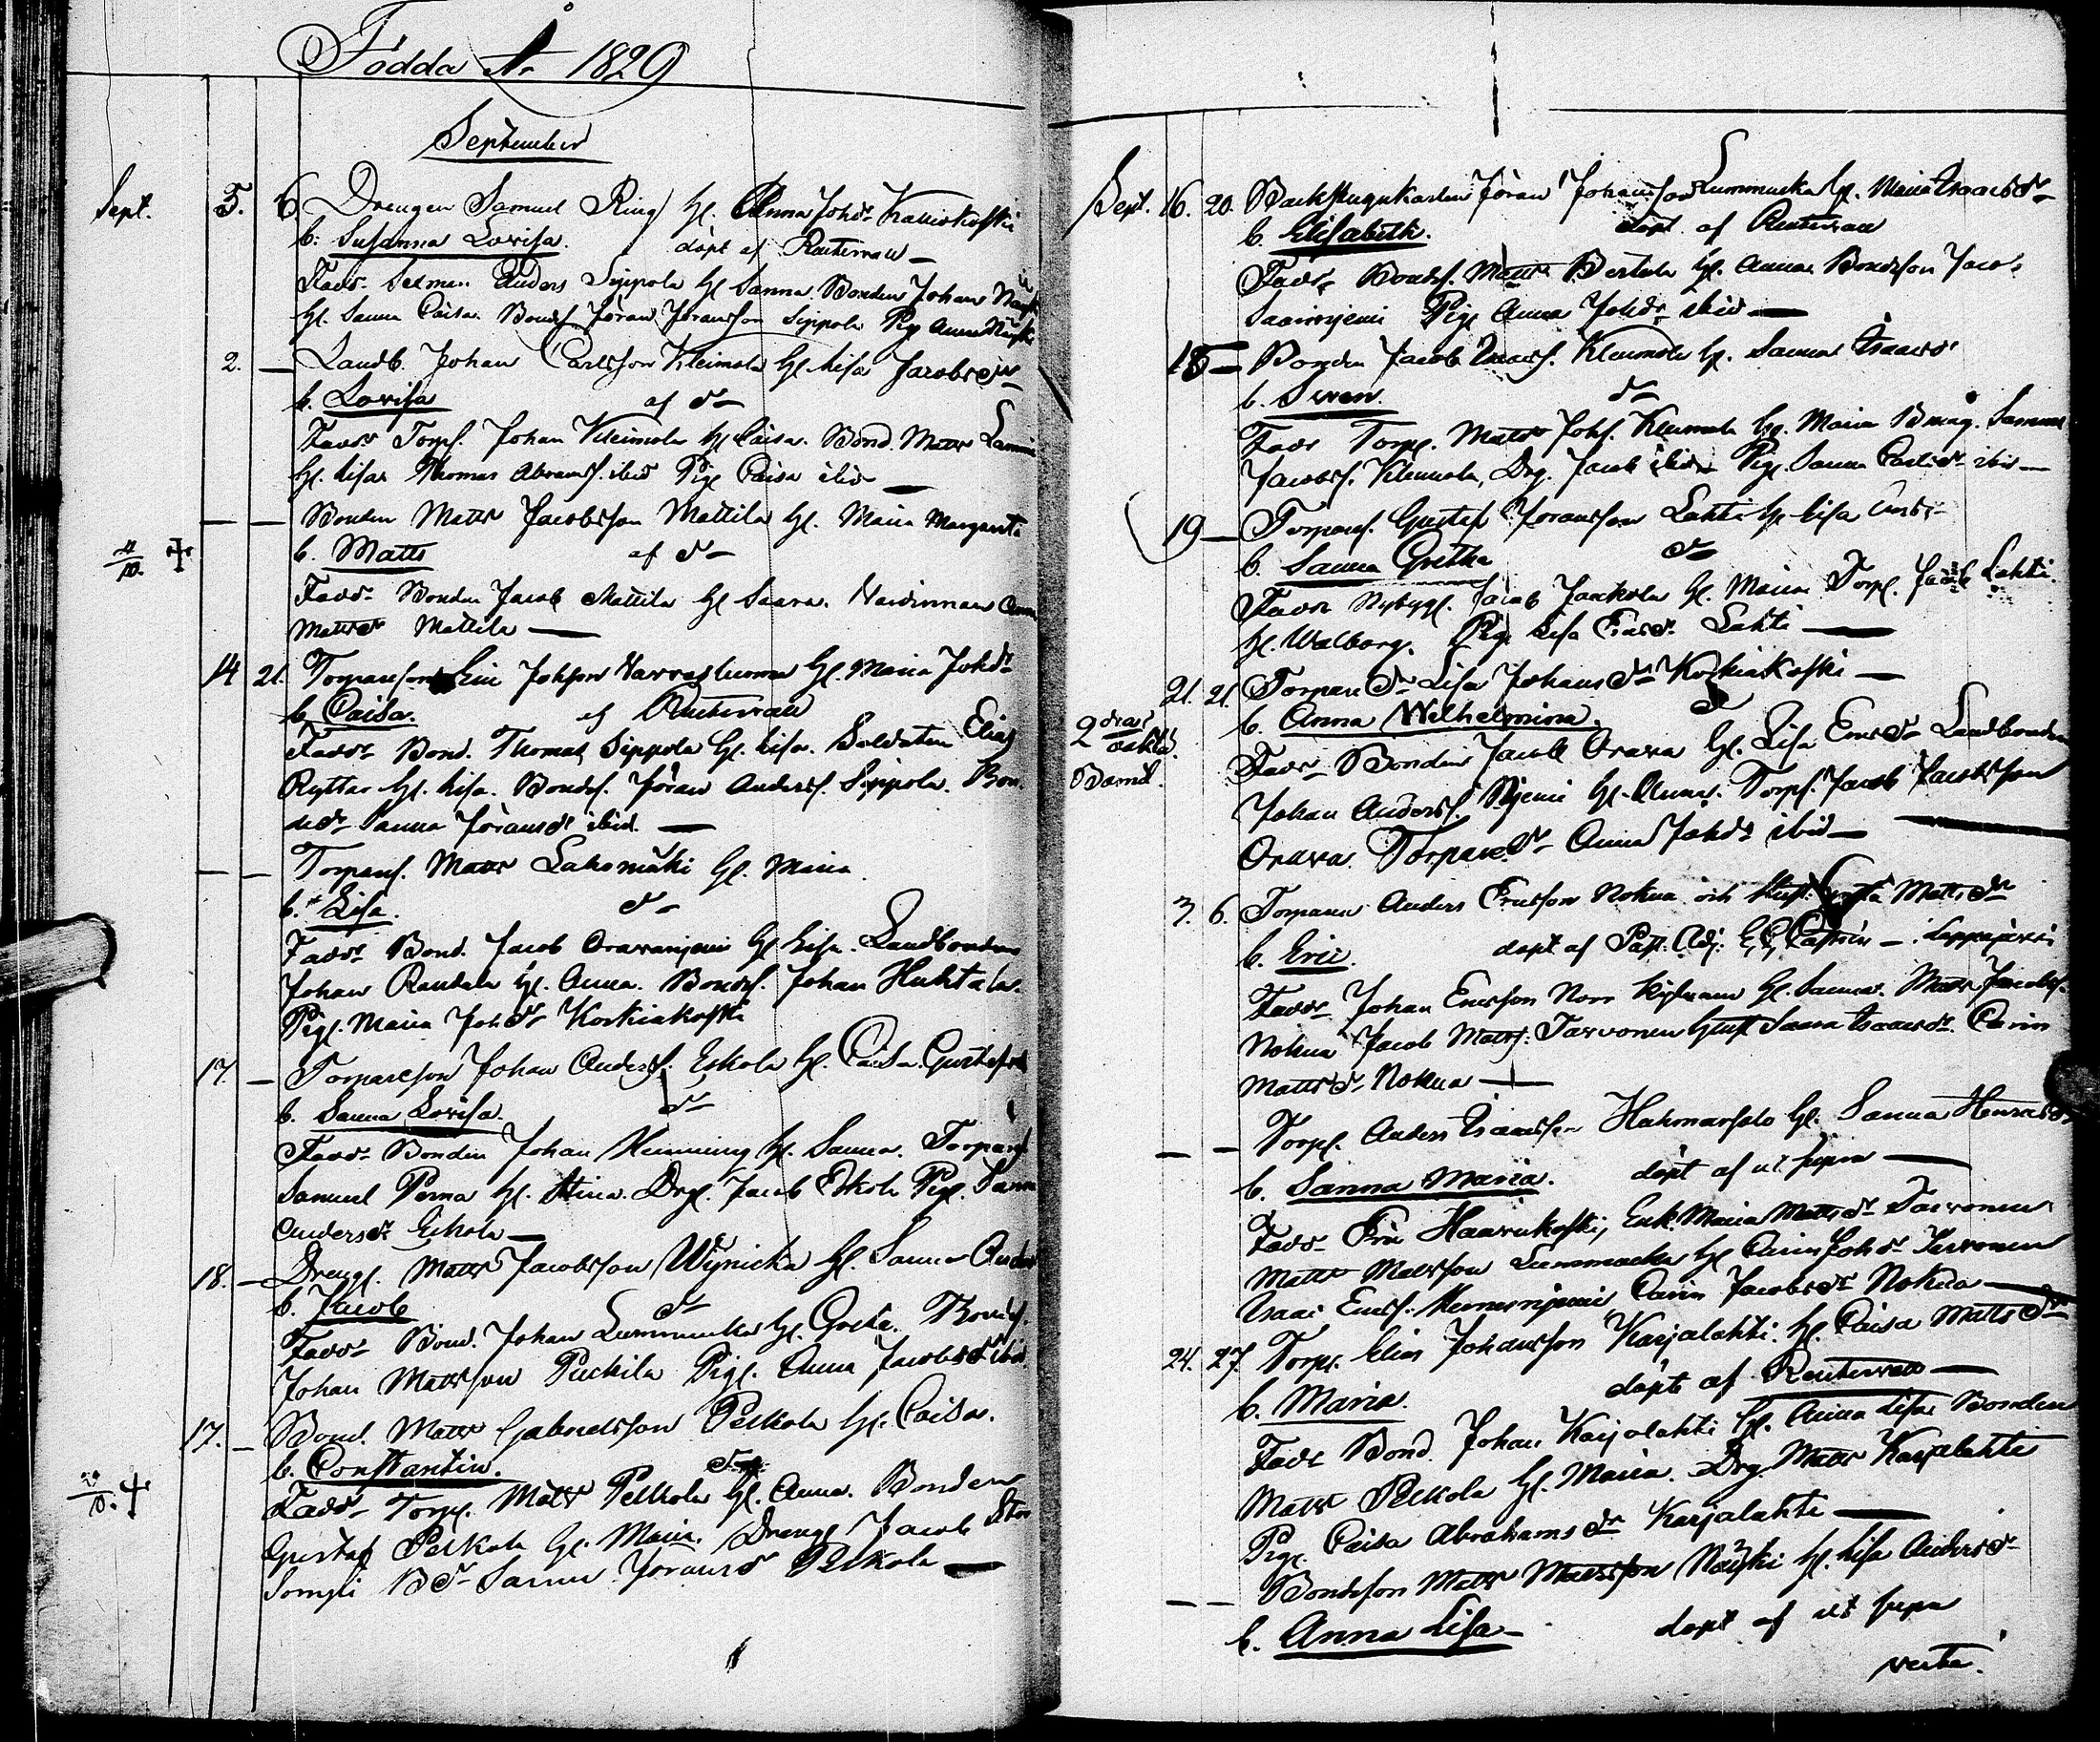 Födda År 1829
September
Sept. 5. 6. Drengen Samuel Ring Hu. Anna Johsdr
b. Susanna Lovisa. döpt af Reuterwall
Fadd. Anders Sippola Hu Sanna. Bonden Johan
Hu. Sanna Caisa. Bonds. Jöran Jöransson Sippola Pig. Anna
2. — Landb. Johan Carlsson Kleimola Hu. Lisa Jacobsdr
b. Lovisa af do
Fadd Torp. Johan Kleimola Hu Caisa. Bond. Matts
Hu. Lisa Thomas Abrams. ibid Pig. Caisa ibid —
— — Bonden Matts Jacobsson Mattila Hu. Maria Margareta
4/10. † b. Matts af do
Fadd. Bonden Jacob Mattila Hu Saara. Anna
Mattsdr Mattila —
14 21. Torpareson Eric Johsson Hu. Maria Johsdr
b. Caisa. af Reuterwall
Fadd. Bond. Thomas Sippola Hu. Lisa. Soldaten Elias
Ryttar Hu. Lisa. Bonds. Jöran Anderss. Sippola. Bon.
dedr Sanna Jöransdr ibid. —
— — Torpares. Matts Lakomäki Hu. Maria
b. Lisa. do
Fadd. Bond. Jacob Oravanjemi Hu Lisa. Landbonden
Johan Rantala Hu. Anna. Bonds. Johan Huhtala.
Pig. Maria Johsdr Korkiakoski
17. — Torpareson Johan Anderss. Eskola Hu. Caisa Gustafsdr
b. Sanna Lovisa. do
Fadd. Bonden Johan Hemming Hu. Sanna. Torpares
Samuel Perna Hu. Stina. Drg. Jacob Eskola Pig. Sanna
Andersdr Eskola —
18. — Dreng. Matts Jacobsson Wijnicka Hu. Sanna
b. Jacob do
Fadd. Bond. Johan Lummukka Hu. Greta. Bonds.
Johan Mattsson Puckila Pig. Anna Jacobsdr ibid.
17. — Bond. Matts Gabrielsson Pelkola Hu. Caisa.
b. Constantin. do
10. † Fadd. Torp. Matts Pelkola Hu. Anna. Bonden
Gustaf Pelkola Hu. Maria. Dreng Jacob
Bdr Sanna Jöransdr Pelkola —
Sept. 16. 20. Backstugukarlen Jöran Johansson Lummucka Hu. Maria Isaacsdr
b. Elisabeth. döpt af Reuterwall
Fadd. Bonds. Matts Bertula Hu. Anna. Bondeson Jacob
Saarinjemi Pig. Anna Johsdr ibid —
18 — Bonden Jacob Isaacs. Kleimola Hu. Sanna Isaacsdr
b. Swen. do
Fadd Torp. Matts Johs. Kleimola Hu. Maria Samuel
Jacobss. Kleimola, Drg. Jacob ibid Pig. Sanna Carlsdr ibid —
19 — Torpares. Gustaf Jöransson Lahti Hu Lisa Andr
b. Sanna Gretha do
Fadd Nybygg. Jacob Jaakola Hu. Maria Torp. Jacob Lahti.
Hu. Walborg. Pig. Lisa Lahti —
21. 21. Torparedr Lisa Johansdr Korkiakoski —
b. Anna Wilhelmina. do
2dra oäkta Barnet. Fadd. Bonden Jacob Orava Hu. Lisa Ericsdr Landbonden
Johan Anderss. Hu. Anna. Torp. Jacob Jacobsson
Orava. Torparedr Anna Johsdr ibid —
3. 6. Torparen Anders Ericsson Nokua och Hust. Greta Mattsdr
b. Eric. döpt af Past. Adj. Castrén — i Lappajervi
Fadd. Johan Ericsson Norr Hu. Sanna. Matts Jacobss.
Nokua Jacob Matts. Tarvonen Hust Saara Isaacsdr. Carin
Mattsdr Nokua —
— — Torp. Anders Isaacsson Hu. Sanna Henricsdr
b. Sanna Maria. döpt af ut supra —
Fadd. Eric Haarukoski, Enk. Maria Mattsdr Tarvonen
Matts Mattsson Lummucka Hu Carin Johsdr Tarvonen
Isaac Ericss. Carin Jacobsdr Nokua —
24. 27. Torp. Elias Johansson Karjalahti. Hu. Caisa Mattsdr
b. Maria. döpt af Reuterwall —
Fadd. Bond. Johan Karjalahti Hu. Anna Lisa Bonden
Matts Pelkola Hu. Maria. Drg. Matts Karjalahti
Pig. Caisa Abrahamsdr Karjalahti —
— — Bondeson Matts Mattsson Näyski Hu. Lisa Andersdr
b. Anna Lisa — döpt af ut supra
verte.